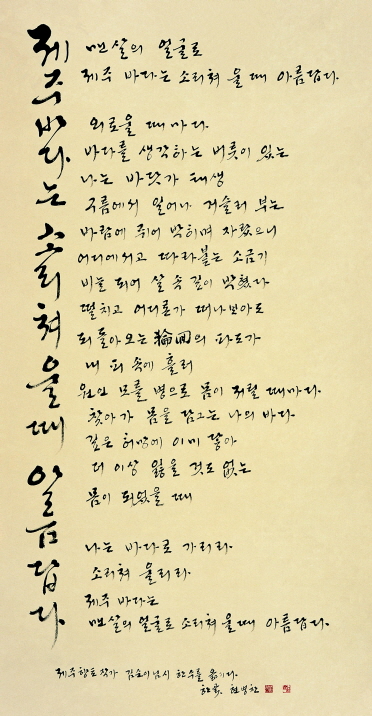 제주바다는 소리쳐 울 때 아름답다
맨살의 얼굴로
제주 바다는 소리쳐 울 때 아름답다.
외로울 때마다.
바다를 생각하는 버릇이 있는
나는 바닷가 태생
구름에서 일어나 거슬러 부는
바람에 쥐어 박히며 자랐으니
어디에서고 따라붙는 소금기
비늘 되어 살 속 깊이 박혔다
떨치고 어디론가 떠나보아도
되돌아오는 輪回의 파도가
내 피 속에 흘러
원인 모를 병으로 몸이 저릴 때마다.
찾아가 몸을 담그는 나의 바다.
깊은 허망에 이미 닿아
더 이상 잃을 것도 없는
몸이 되었을 때
나는 바다로 가리라.
소리쳐 울리라.
제주 바다는
맨살의 얼굴로 소리쳐 울 때 아름답다.
제주향토작가 김순이님시 한수를 옮기다.